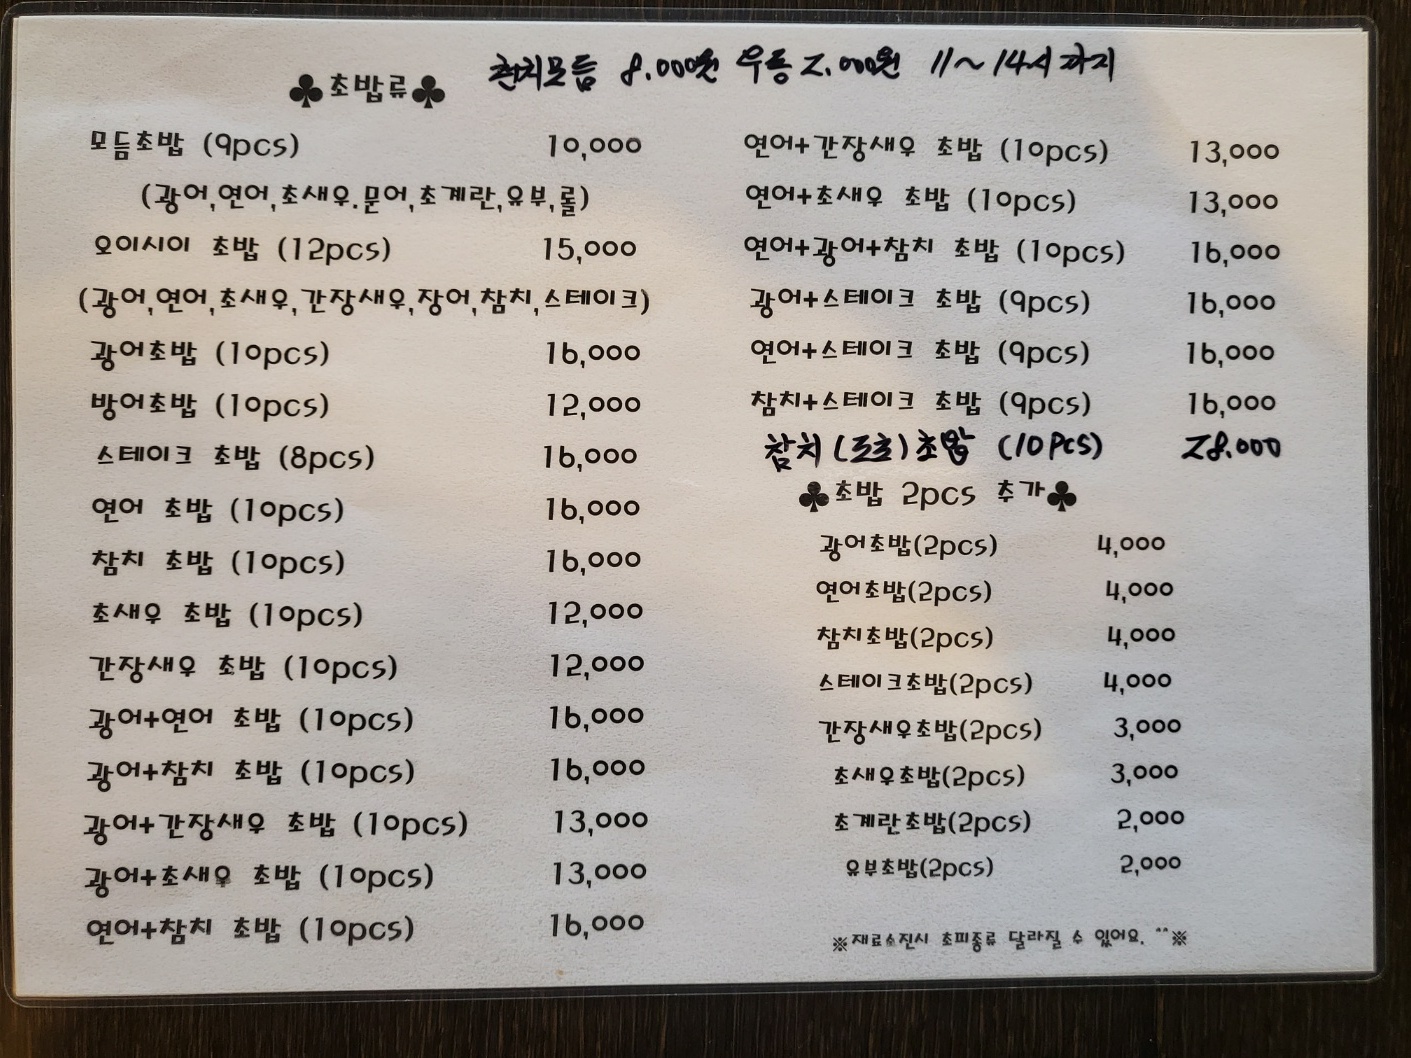 ♣초밥류♣
런치모듬 8.000원 우동 2.000원 11~14시까지
모듬초밥 (9pcs) 10,000
(광어,연어,초새우.문어,초계란,유부,롤)
오이시이 초밥 (12pcs) 15,000
(광어,연어,초새우,간장새우,장어,참치,스테이크)
광어초밥 (10pcs) 16,000
방어초밥 (10pcs) 12,000
스테이크 초밥 (8pcs) 16,000
연어 초밥 (10pcs) 16,000
참치 초밥 (10pcs) 16,000
초새우 초밥 (10pcs) 12,000
간장새우 초밥 (10pcs) 12,000
광어+연어 초밥 (10pcs) 16,000
광어+참치 초밥 (10pcs) 16,000
광어+간장새우 초밥 (10pcs) 13,000
광어+초새우 초밥 (10pcs) 13,000
연어+참치 초밥 (10pcs) 16,000
연어+간장새우 초밥 (10pcs) 13,000
연어+초새우 초밥 (10pcs) 13,000
연어+광어+참치 초밥 (10pcs) 16,000
광어+스테이크 초밥 (9pcs) 16,000
연어+스테이크 초밥 (9pcs) 16,000
참치+스테이크 초밥 (9pcs) 16,000
참치(도로)초밥 (10PCS) 28.000
♣초밥 2pcs 추가♣
광어초밥(2pcs) 4,000
연어초밥(2pcs) 4,000
참치초밥(2pcs) 4,000
스테이크초밥(2pcs) 4,000
간장새우초밥(2pcs) 3,000
초새우초밥(2pcs) 3,000
초계란초밥(2pcs) 2,000
유부초밥(2pcs) 2,000
※재료소진시 초피종류 달라질 수 있어요. ^^※